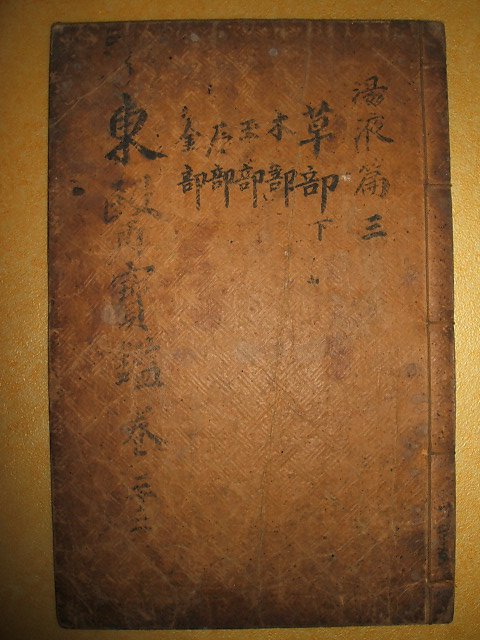 湯液篇 三
草部 下
木部
玉部
石部
金部
東醫寶鑑 卷之三